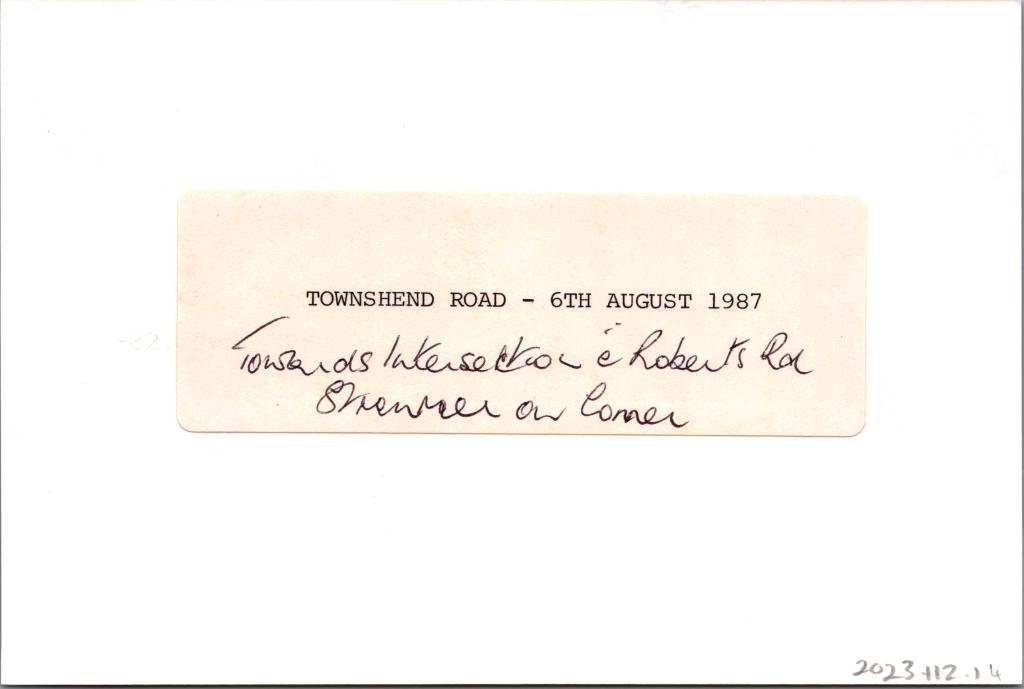 TOWNSHEND ROAD - 6TH AUGUST 1987
Towards Intersection c̄ Roberts Rd
on Corner
2023.112.14